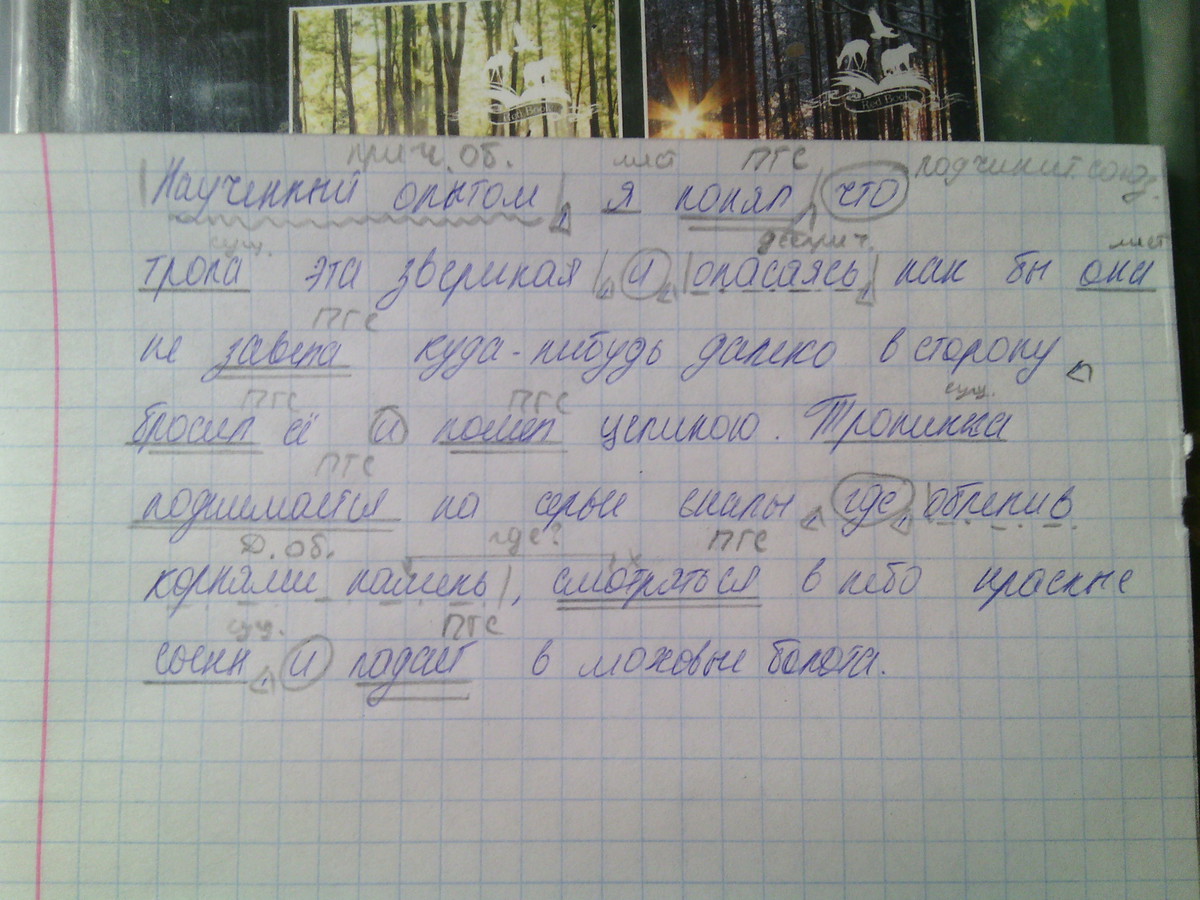 Red Book
Red Book
прич. об. мест ПГС подчинит. союз.
Наученный опытом, я понял, что
сущ. дееприч. мест
тропа эта звериная, и, опасаясь, как бы она
ПГС
не завела куда-нибудь далеко в сторону,
ПГС ПГС сущ.
бросил её и пошёл целиною. Тропинка
ПГС
поднимается на серые скалы, где, облепив
Д. об. где? х ПГС
корнями камень, смотряться в небо красные
сущ. ПГС
сосны, и падает в моховые болота.